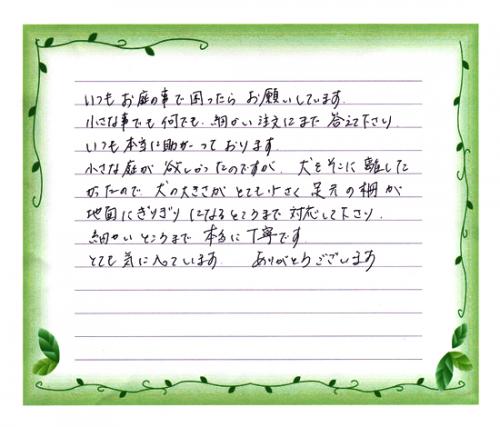 いつも お庭の事で 困ったら お願いしています。
小さな事でも 何でも、細かい 注文にまで 答えて下さり、
いつも 本当に 助かって おります。
小さな庭が 欲しかったのですが、犬をそこに 離した
かったので 犬の大きさが とても小さく 足元の柵が
地面にぎりぎり になるところまで 対応して下さり、
細かい ところまで 本当に 丁寧です
とても 気に入っています。 ありがとうございます